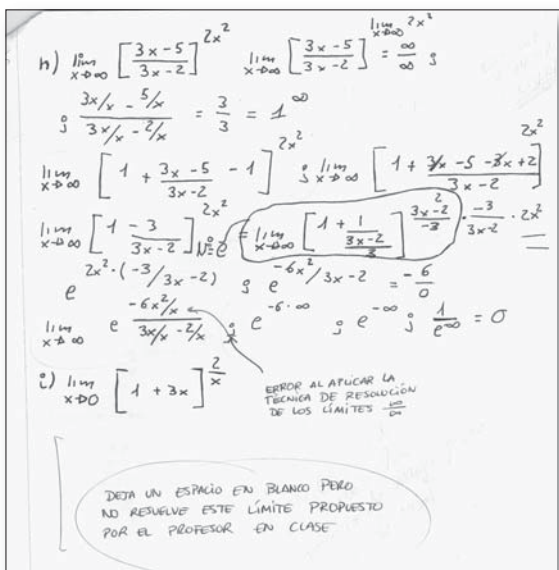 h) lim x→∞ [3x-5 / 3x-2]^2x² lim x→∞ [3x-5 / 3x-2]^lim x→∞ 2x² = ∞/∞ ;
; 3x/x - 5/x / 3x/x - 2/x = 3/3 = 1^∞
lim x→∞ [1 + 3x-5 / 3x-2 - 1]^2x² ; lim x→∞ [1 + 3x - 5 - 3x + 2 / 3x-2]^2x²
lim x→∞ [1 - 3 / 3x-2]^2x² N:e = lim x→∞ [1 + 1 / 3x-2 / 3]^3x-2 / -3 · -3 / 3x-2 · 2x²
e^2x²·(-3/3x-2) ; e^-6x²/3x-2 = -6/0
lim x→∞ e^-6x²/x / 3x/x - 2/x ; e^-6·∞ ; e^-∞ ; 1/e^∞ = 0
i) lim x→0 [1 + 3x]^2/x
ERROR AL APLICAR LA
TÉCNICA DE RESOLUCIÓN
DE LOS LÍMITES ∞/∞
DEJA UN ESPACIO EN BLANCO PERO
NO RESUELVE ESTE LÍMITE PROPUESTO
POR EL PROFESOR EN CLASE